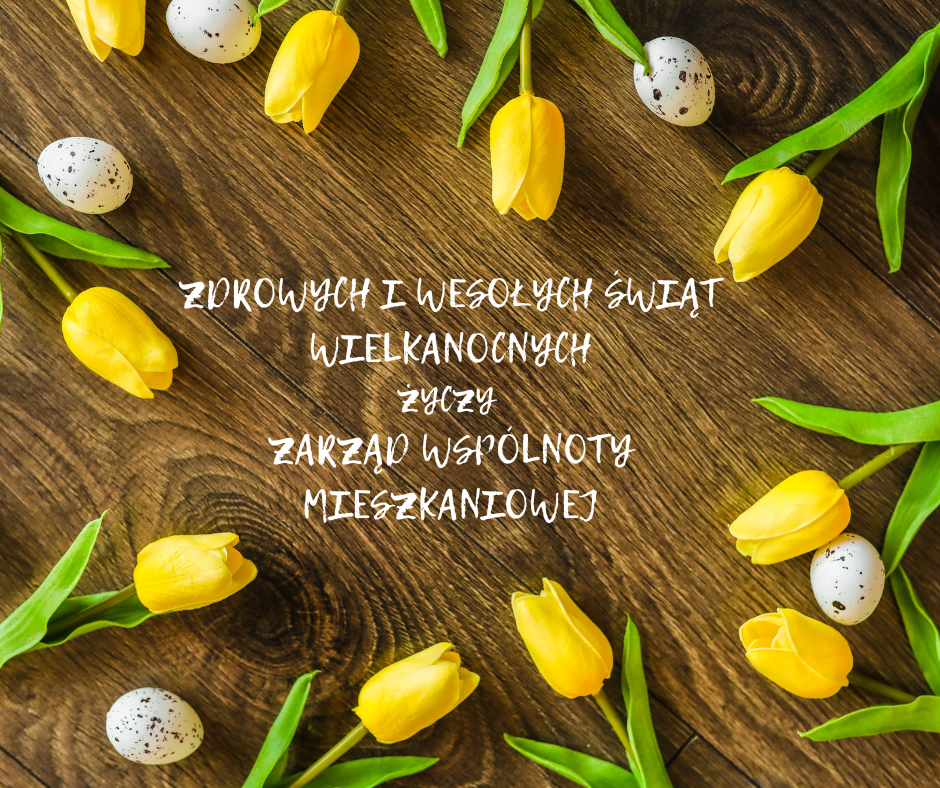 ZDROWYCH I WESOŁYCH ŚWIĄT
WIELKANOCNYCH
ŻYCZY
ZARZĄD WSPÓLNOTY
MIESZKANIOWEJ